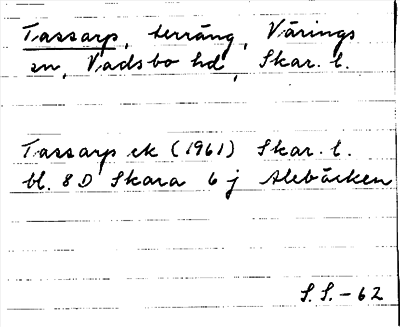 Tassarp, terräng, Värings
sn, Vadsbo hd, Skar. l.
Tassarp ek (1961) Skar. l.
bl. 8 D Skara 6 j Alebäcken
S.S. - 62